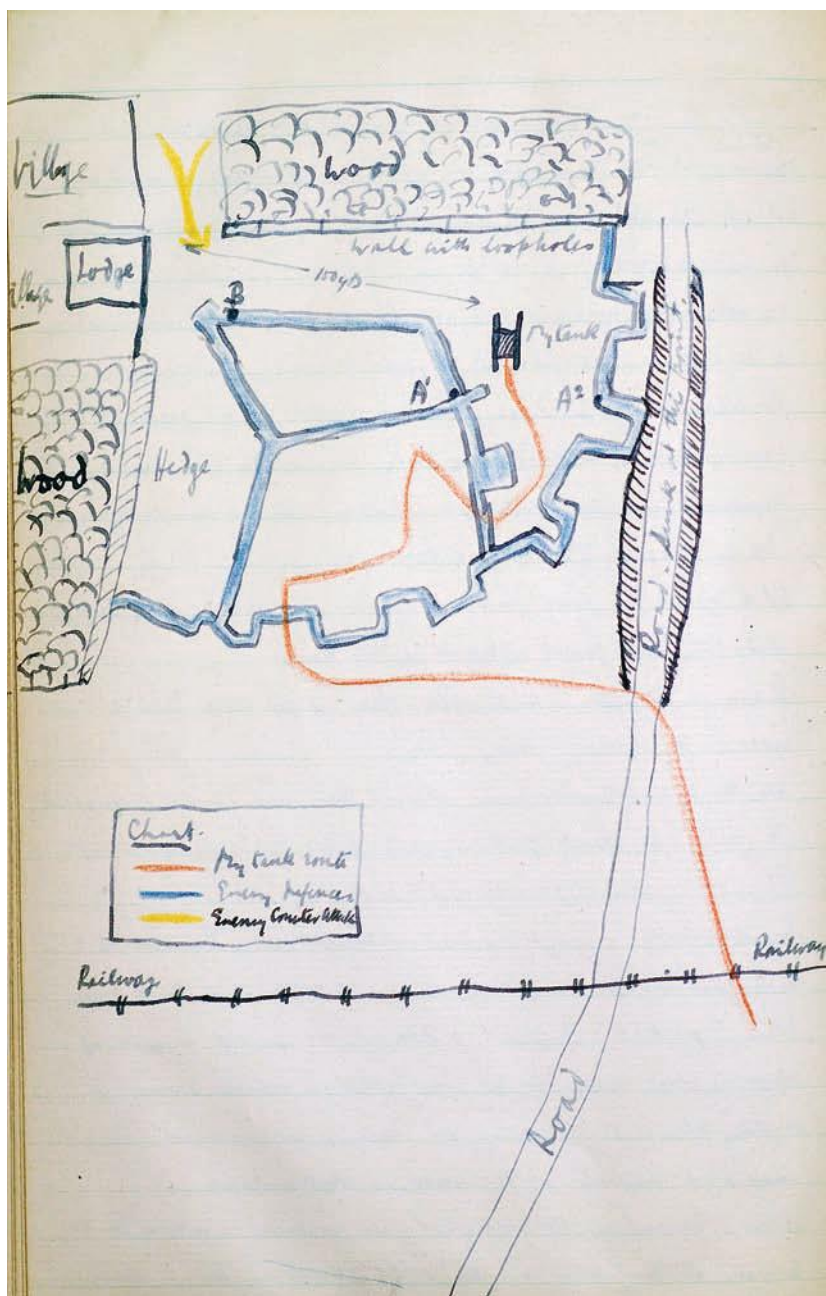 Village
wood
Lodge
wall with loopholes
100 yds
B
My tank
A1
A2
wood
Hedge
Road. sunk at this point.
Chart.
My tank route
Enemy Defences
Enemy Counter Attack
Railway
Railway
Road